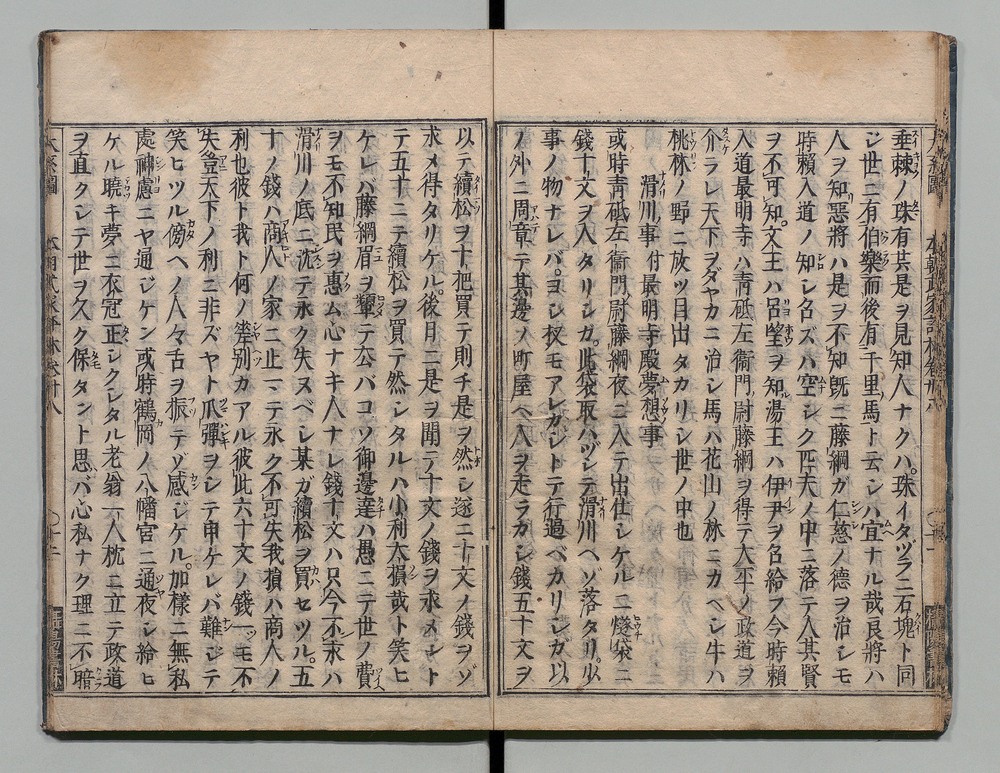 垂棘ノ珠有共是ヲ見知人ナクハ。珠イタヅラニ石塊ト同
シ世ニ有伯樂而後有千里馬ト云シハ宜ナル哉良將ハ
人ヲ知惡將ハ是ヲ不知既ニ藤綱ガ仁慈ノ德ヲ治シモ
時賴入道ノ知シ名ズハ空シク匹夫ノ中ニ落テ入其賢
ヲ不可知。文王ハ呂望ヲ知湯王ハ伊尹ヲ名給フ今時賴
入道最明寺ハ靑砥左衞門尉藤綱ヲ得テ大平ノ政道ヲ
介ラレ天下ヲダヤカニ治シ馬ハ花山ノ林ニカヘシ牛ハ
桃林ノ野ニ放ツ目出タカリシ世ノ中也
滑川事付最明寺殿夢想事
或時靑砥左衞門尉藤綱夜ニ入テ出仕シケルニ燧袋ニ
錢十文ヲ入タリシガ。此袋取ハヅシテ滑川ヘゾ落タリ。少
事ノ物ナレバ。ヨシ杈モアレガシトテ行過ベカリシガ以
ノ外ニ周章テ其邊ノ町屋ヘ人ヲ走ラガシ錢五十文ヲ
以テ續松ヲ十把買テ則チ是ヲ然シ遂ニ十文ノ錢ヲゾ
求メ得タリケル。後日ニ是ヲ聞テ十文ノ錢ヲ求メントト
テ五十ニテ續松ヲ買テ然シタルハ小利大損哉ト笑ヒ
ケレバ藤綱眉ヲ顰テ公バコソ御邊達ハ愚ニテ世ノ費
ヲモ不知民ヲ惠ム心ナキ人ナレ錢十文ハ只今不求ハ
滑川ノ底ニ沈テ永ク失ヌベシ某ガ續松ヲ買セツル。五
十ノ錢ハ商人ノ家ニ止ニテ永ク不可失我損ハ商人ノ
利也彼ト我ト何ノ差別カアル彼此六十文ノ錢一ツモ不
失豈天下ノ利ニ非ズヤト爪彈ヲシテ申ケレバ難ジテ
笑ヒツル傍ヘノ人々舌ヲ振テゾ感ジケル。加樣ニ無私
處神慮ニヤ通ジケン或時鶴岡ノ八幡宮ニ通夜シ給ヒ
ケル曉キ夢ニ衣冠正シクシタル老翁一人枕ニ立テ政道
ヲ直クシテ世ヲ久ク保タント思バ心私ナク理ニ不暗